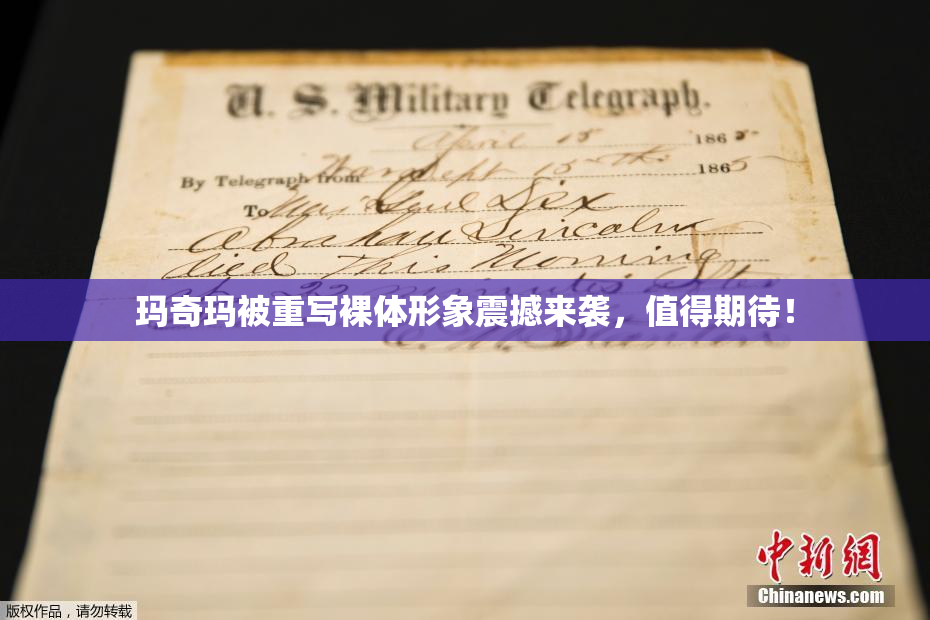 U. S. Military Telegraph.
April 15 1865
By Telegraph from War Dept 15th 1865
To Maj Genl Dix
Abraham Lincoln
died This Morning
at 22 minutes after
玛奇玛被重写裸体形象震撼来袭，值得期待！
E. M. Stanton
中新网
Chinanews.com
版权作品，请勿转载